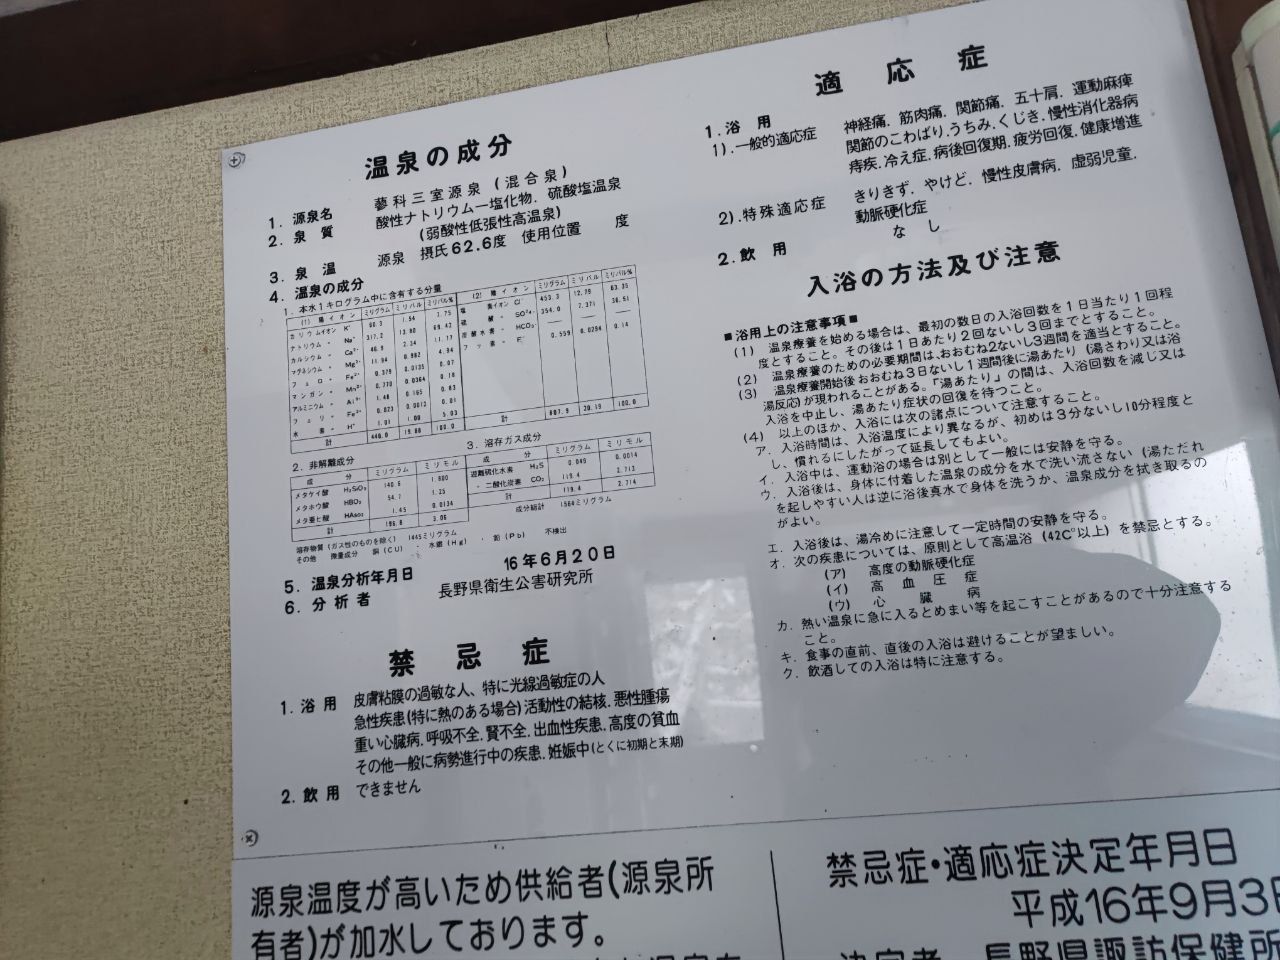 温泉の成分
1. 源泉名 蓼科三室源泉 (混合泉)
2. 泉質 酸性ナトリウム一塩化物. 硫酸塩温泉
(弱酸性低張性高温泉)
3. 泉温 源泉 摂氏62.6度 使用位置 度
4. 温泉の成分
1. 本水1キログラム中に含有する分量
(1) 陽イオン ミリグラム ミリバル ミリバル%
カリウムイオン K⁺ 60.3 1.54 7.75
ナトリウム 〃 Na⁺ 317.2 13.80 69.42
カルシウム 〃 Ca²⁺ 46.9 2.34 11.77
マグネシウム 〃 Mg²⁺ 11.94 0.982 4.94
フェロ 〃 Fe²⁺ 0.379 0.0135 0.07
マンガン 〃 Mn²⁺ 0.770 0.0364 0.18
アルミニウム 〃 1.48 0.165 0.83
フェリ 〃 0.023 0.0012 0.01
水素 〃 H⁺ 1.01 1.00 5.03
計 440.0 19.88 100.0
(2) 陰イオン ミリグラム ミリバル ミリバル%
塩素イオン Cl⁻ 453.3 12.79 63.35
硫酸 〃 SO₄²⁻ 354.0 7.371 36.51
炭酸水素 〃 HCO₃⁻
フッ素 〃 F⁻ 0.559 0.0294 0.14
計 807.9 20.19 100.0
2. 非解離成分
成分 ミリグラム ミリモル
メタケイ酸 H₂SiO₃ 140.6 1.800
メタホウ酸 HBO₂ 54.7 1.25
メタ亜ヒ酸 HAsO₂ 1.45 0.0134
計 196.8 3.06
3. 溶存ガス成分
成分 ミリグラム ミリモル
遊離硫化水素 H₂S 0.049 0.0014
〃 二酸化炭素 CO₂ 119.4 2.713
計 119.4 2.714
成分総計 1564ミリグラム
溶存物質 (ガス性のものを除く) 1445ミリグラム
その他 微量成分 銅(CU) . 水銀(Hg) . 鉛(Pb) 不検出
5. 温泉分析年月日 16年6月20日
6. 分析者 長野県衛生公害研究所
禁忌症
1. 浴用 皮膚粘膜の過敏な人、特に光線過敏症の人
急性疾患(特に熱のある場合)活動性の結核. 悪性腫瘍
重い心臓病. 呼吸不全. 賢不全. 出血性疾患. 高度の貧血
その他一般に病勢進行中の疾患. 妊娠中(とくに初期と末期)
2. 飲用 できません
適応症
1. 浴用
1). 一般的適応症 神経痛. 筋肉痛. 関節痛. 五十肩. 運動麻痺
関節のこわばり. うちみ. くじき. 慢性消化器病
痔疾. 冷え症. 病後回復期. 疲労回復. 健康増進
2). 特殊適応症 きりきず. やけど. 慢性皮膚病. 虚弱児童.
動脈硬化症
2. 飲用 なし
入浴の方法及び注意
■浴用上の注意事項■
(1) 温泉療養を始める場合は、最初の数日の入浴回数を1日当たり1回程
度とすること。その後は1日あたり2回ないし3回までとすること。
(2) 温泉療養のための必要期間は、おおむね2ないし3週間を適当とすること。
(3) 温泉療養開始後おおむね3日ないし1週間後に湯あたり(湯さわり又は浴
湯反応)が現われることがある。「湯あたり」の間は、入浴回数を減じ又は
入浴を中止し、湯あたり症状の回復を待つこと。
(4) 以上のほか、入浴には次の諸点について注意すること。
ア. 入浴時間は、入浴温度により異なるが、初めは3分ないし10分程度と
し、慣れるにしたがって延長してもよい。
イ. 入浴中は、運動浴の場合は別として一般には安静を守る。
ウ. 入浴後は、身体に付着した温泉の成分を水で洗い流さない(湯ただれ
を起しやすい人は逆に浴後真水で身体を洗うか、温泉成分を拭き取るの
がよい。
エ. 入浴後は、湯冷めに注意して一定時間の安静を守る。
オ. 次の疾患については、原則として高温浴(42℃以上)を禁忌とする。
(ア) 高度の動脈硬化症
(イ) 高血圧症
(ウ) 心臓病
カ. 熱い温泉に急に入るとめまい等を起こすことがあるので十分注意する
こと。
キ. 食事の直前、直後の入浴は避けることが望ましい。
ク. 飲酒しての入浴は特に注意する。
源泉温度が高いため供給者(源泉所
有者)が加水しております。
禁忌症・適応症決定年月日
平成16年9月3日
決定者 長野県諏訪保健所